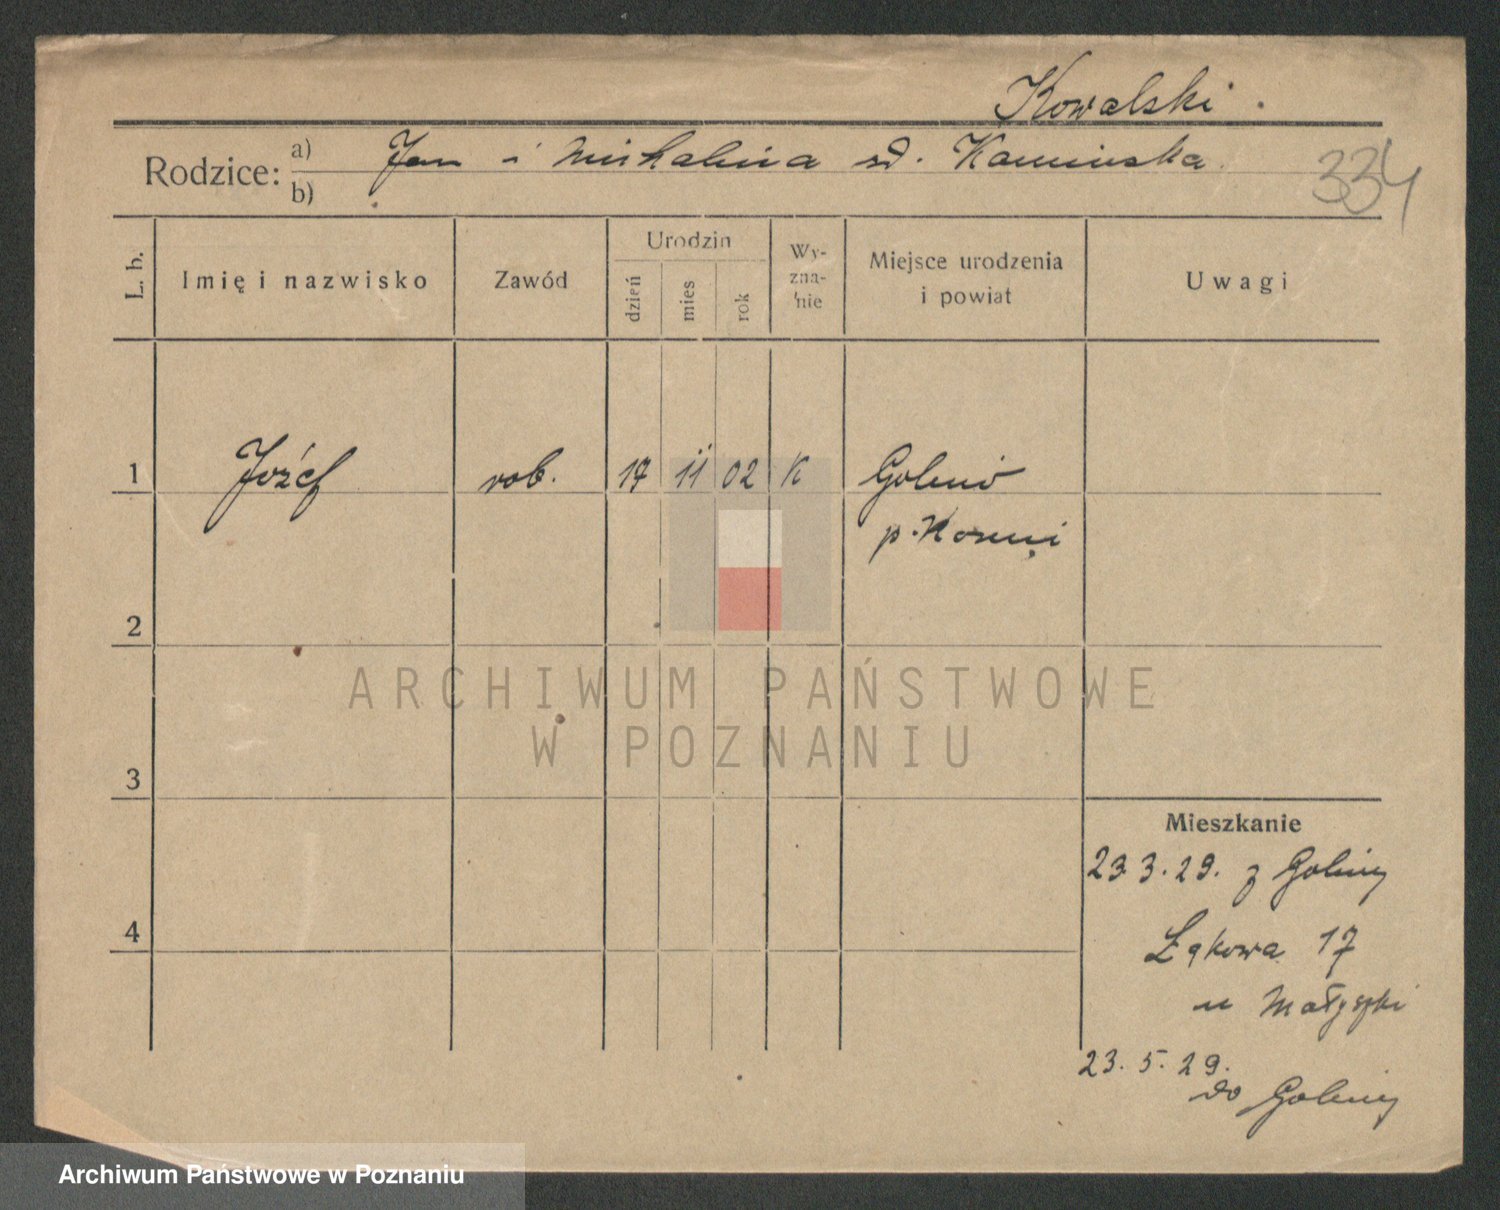 Kowalski.
Rodzice: a) Jan i Michalina zd. Kamińska
b)
334
L. b.
Imię i nazwisko
Zawód
Urodzin
dzień
mies
rok
Wy-
zna-
nie
Miejsce urodzenia
i powiat
Uwagi
1 Józef rob. 17 11 02 K
p.
2
ARCHIWUM PAŃSTWOWE
W POZNANIU
3
Mieszkanie
23.3.29. z Goliny
4
Łąkowa 17
u Małyszki
23.5.29.
do Goliny
Archiwum Państwowe w Poznaniu